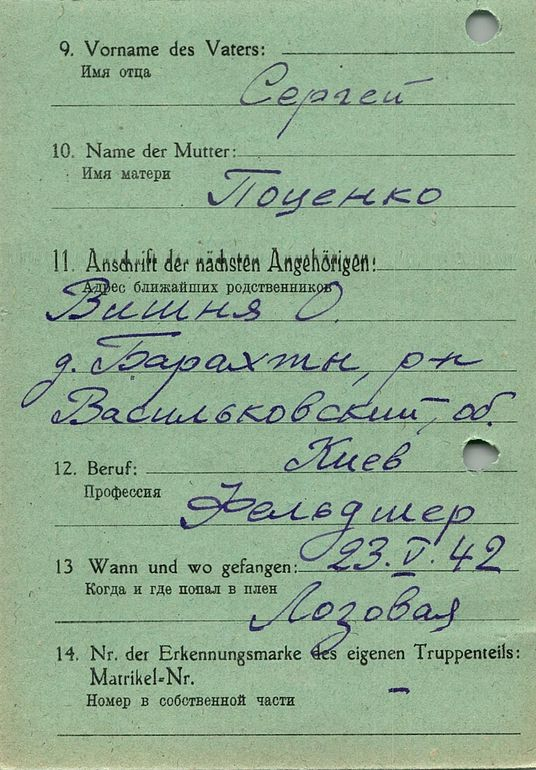 9. Vorname des Vaters:
Имя отца
Сергей
10. Name der Mutter:
Имя матери
Поценко
11. Anschrift der nächsten Angehörigen:
Адрес ближайших родственников
Вишня О.
д. Барахты, р-н
Васильковский, об.
Киев
12. Beruf:
Профессия
Фельдшер
13 Wann und wo gefangen: 23.V.42
Когда и где попал в плен
Лозовая
14. Nr. der Erkennungsmarke des eigenen Truppenteils:
Matrikel-Nr.
Номер в собственной части –